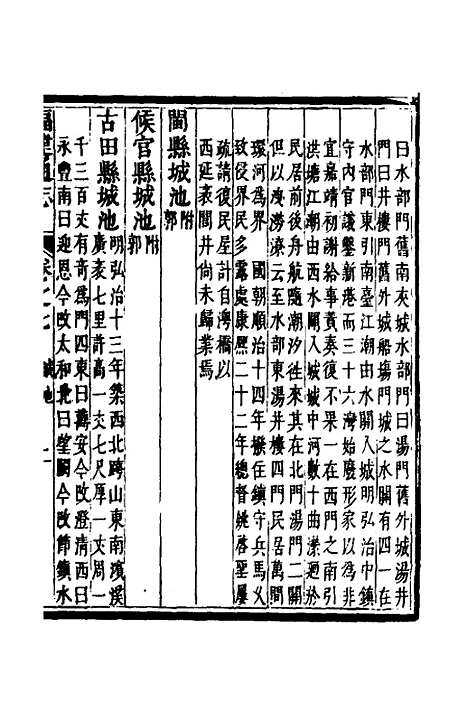 曰水部門舊南夾城水部門曰湯門舊外城湯井
門曰井樓門舊外城船塲門城之水關有四一在
水部門東引南臺江潮由水關入城明弘治中鎮
守內官議鑿新港而三十六灣始廢形家以為非
宜嘉靖初謝給事蕡奏復不果一在西門之南引
洪塘江潮由西水關入城城中河數十曲縈廻於
民居前後舟航隨潮汐徃來其在北門湯門二關
但以洩澇滾云在西至水部東湯井樓四門民居萬間
環河為界 國朝順治十四年撥任鎮守兵馬又
致侵界民多露處康熙二十二年總督姚啓聖屢
疏請復民屋計自灣橋以
西延袤閭井尚未歸業焉
閩縣城池附郭
候官縣城池附郭
古田縣城池明弘治十三年築西北跨山東南濱溪
廣袤七里許高一丈七尺厚一丈周一
千三百丈有奇為門四東曰舊安今改澄清西曰
永豐南曰迎恩今改太和北曰望闕今改節鎮水
福建通志 卷之七 城池